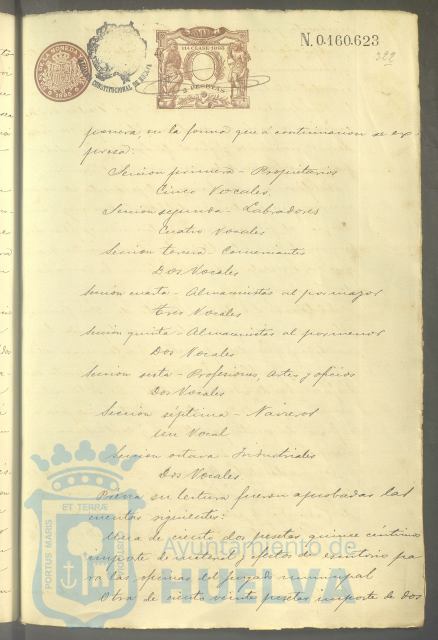 N. 0.160.623
322
11ª CLASE
2 PESETAS
CONSTITUCIONAL
ponerá en la forma que á continuacion se ex-
presa:
Seccion primera - Propietarios
Cinco Vocales.
Seccion segunda - Labradores
Cuatro Vocales
Seccion tercera - Comerciantes
Dos Vocales
Seccion cuarta - Almacenistas al por mayor
Tres Vocales
Seccion quinta - Almacenistas al por menor
Dos Vocales
Seccion sesta - Profesiones, Artes y oficios
Dos Vocales
Seccion séptima - Navieros
un Vocal
Seccion octava - Industriales
Dos Vocales
Previa su lectura fueron aprobadas las
cuentas siguientes:
Una de ciento dos pesetas quince céntimos
importe de material y efectos de escritorio pa
ra las oficinas del juzgado municipal
Otra de ciento veinte pesetas importe de dos
PORTUS MARIS
ET TERRÆ
CUSTODIA
Ayuntamiento de
HUELVA